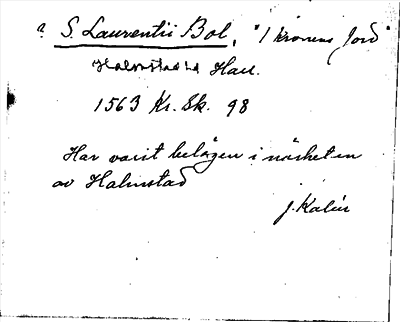 ? S. Laurentii Bol, "I kronens Jord"
Halmstads Hall.
1563 Kr. Sk. 98
Har varit belägen i närheten
av Halmstad
J. Kalén